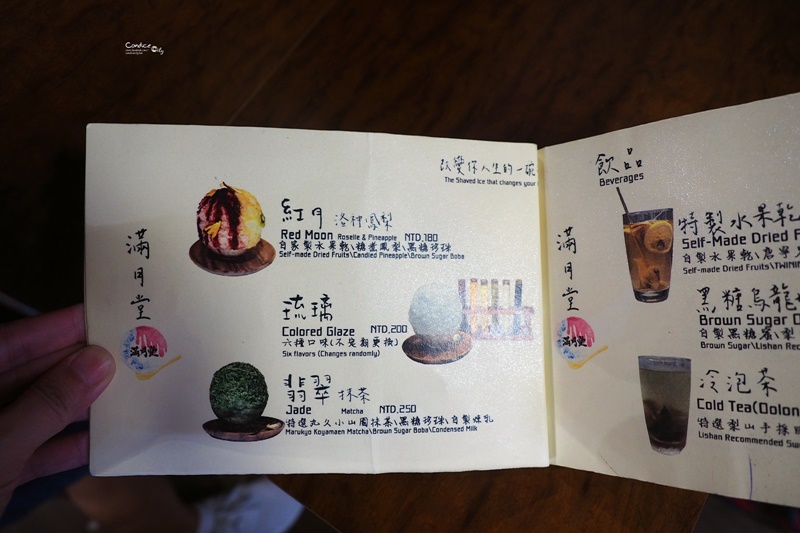 Candice City
改變你人生的一碗
The Shaved Ice that changes your
滿月堂
紅月 洛神鳳梨
Red Moon Roselle & Pineapple NTD.180
自家製水果乾\糖煮鳳梨\黑糖珍珠
Self-made Dried Fruits\Candied Pineapple\Brown Sugar Boba
琉璃
Colored Glaze NTD.200
六種口味(不定期更換)
Six flavors (Changes randomly)
翡翠 抹茶
Jade Matcha NTD.250
特選丸久小山園抹茶\黑糖珍珠\自製煉乳
Marukyo Koyamaen Matcha\Brown Sugar Boba\Condensed Milk
飲品
Beverages
滿月堂
特製水果乾
Self-Made Dried F
自製水果乾\唐寧
Self-made Dried Fruits\TWININ
黑糖烏龍
Brown Sugar O
自製黑糖蜜\梨
Brown Sugar\Lishan Rec
冷泡茶
Cold Tea(Dolon
特選梨山手採
Lishan Recommended Su